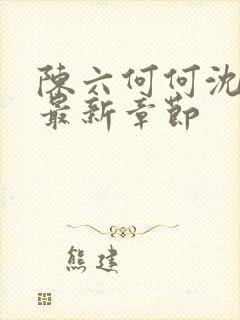 陳六何何沈
最新章節
熊建